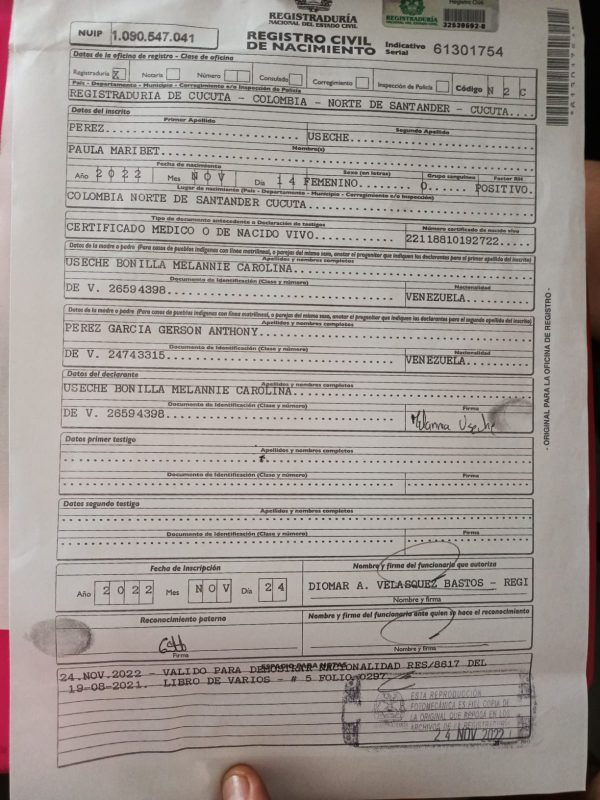 REGISTRADURÍA
NACIONAL DEL ESTADO CIVIL
REGISTRADURÍA
Registro Civil
32539692-8
NUIP 1.090.547.041
REGISTRO CIVIL
DE NACIMIENTO
Indicativo Serial 61301754
Datos de la oficina de registro - Clase de oficina
Registraduría X Notaría Número Consulado Corregimiento Inspección de Policía Código N 2 C
País - Departamento - Municipio - Corregimiento e/o Inspección de Policía
REGISTRADURIA DE CUCUTA - COLOMBIA - NORTE DE SANTANDER - CUCUTA
Datos del inscrito
Primer Apellido Segundo Apellido
PEREZ USECHE
Nombre(s)
PAULA MARIBET
Fecha de nacimiento Sexo (en letras) Grupo sanguíneo Factor RH
Año 2022 Mes NOV Día 14 FEMENINO O POSITIVO
Lugar de nacimiento (País - Departamento - Municipio - Corregimiento e/o Inspección)
COLOMBIA NORTE DE SANTANDER CUCUTA
Tipo de documento antecedente o Declaración de testigos Número certificado de nacido vivo
CERTIFICADO MEDICO O DE NACIDO VIVO 22118810192722
Datos de la madre o padre (Para casos de pueblos indígenas con línea matrilineal, o parejas del mismo sexo, anotar el progenitor que indiquen los declarantes para el primer apellido del inscrito)
Apellidos y nombres completos
USECHE BONILLA MELANNIE CAROLINA
Documento de Identificación (Clase y número) Nacionalidad
DE V. 26594398 VENEZUELA
Datos de la madre o padre (Para casos de pueblos indígenas con línea matrilineal, o parejas del mismo sexo, anotar el progenitor que indiquen los declarantes para el segundo apellido del inscrito)
Apellidos y nombres completos
PEREZ GARCIA GERSON ANTHONY
Documento de Identificación (Clase y número) Nacionalidad
DE V. 24743315 VENEZUELA
Datos del declarante
Apellidos y nombres completos
USECHE BONILLA MELANNIE CAROLINA
Documento de Identificación (Clase y número) Firma
DE V. 26594398
Datos primer testigo
Apellidos y nombres completos
Documento de Identificación (Clase y número) Firma
Datos segundo testigo
Apellidos y nombres completos
Documento de Identificación (Clase y número) Firma
Fecha de inscripción Nombre y firma del funcionario que autoriza
Año 2022 Mes NOV Día 24 DIOMAR A. VELASQUEZ BASTOS - REGI
Nombre y firma
Reconocimiento paterno Nombre y firma del funcionario ante quien se hace el reconocimiento
Firma Nombre y firma
ESPACIO PARA NOTAS
24.NOV.2022 - VALIDO PARA DEMOSTRAR NACIONALIDAD RES/8617 DEL
19-08-2021. LIBRO DE VARIOS - # 5 FOLIO 0297.
ESTA REPRODUCCIÓN
FOTOMECÁNICA ES FIEL COPIA DE
LA ORIGINAL QUE REPOSA EN LOS
ARCHIVOS DE LA REGISTRADURIA
24 NOV 2022
- ORIGINAL PARA LA OFICINA DE REGISTRO -